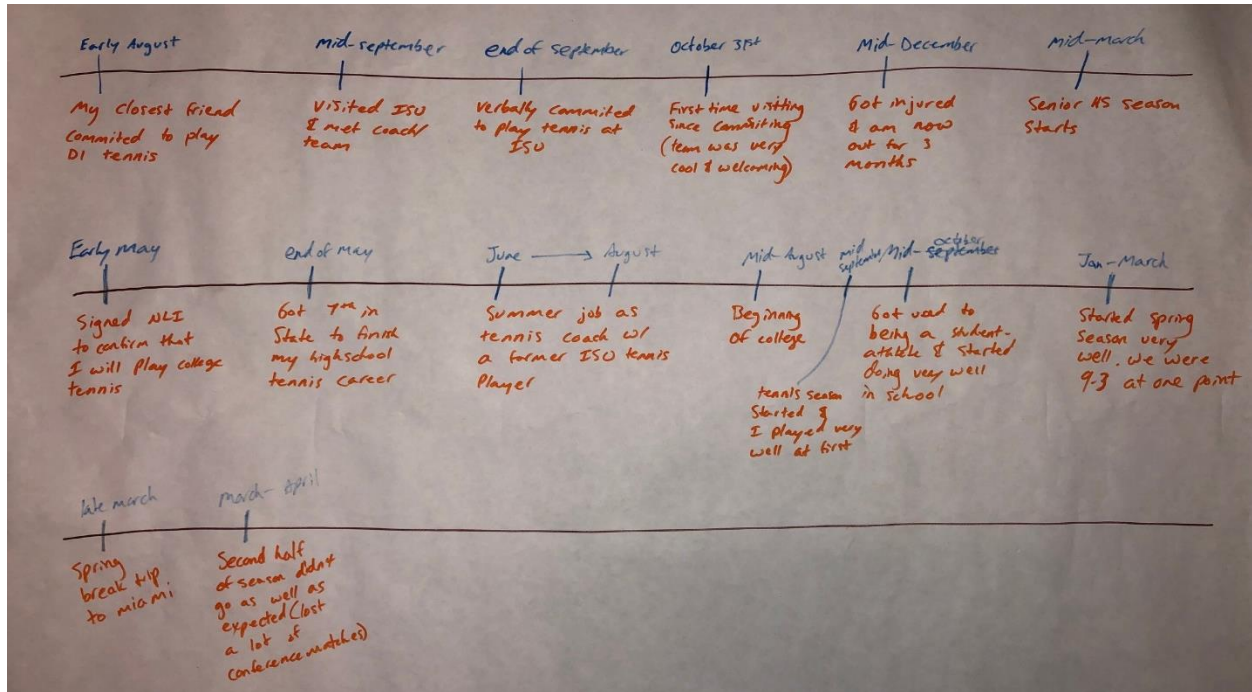 Early August
My closest friend
commited to play
D1 tennis
Mid-september
Visited ISU
& met coach/
team
end of september
Verbally commited
to play tennis at
ISU
October 31st
First time visiting
since commiting
(team was very
cool & welcoming)
Mid-December
Got injured
& am now
out for 3
months
Mid-march
Senior HS season
starts
Early may
Signed NLI
to confirm that
I will play college
tennis
end of may
Got 7th in
State to finish
my highschool
tennis career
June → August
Summer job as
tennis coach w/
a former ISU tennis
Player
Mid-August
Beginning
of college
mid
september
tennis season
Started &
I played very
well at first
/Mid-september
october
Got used to
being a student-
athlete & started
doing very well
in school
Jan-March
Started spring
season very
well. we were
9-3 at one point
late march
Spring
break trip
to miami
march-April
Second half
of season didn't
go as well as
expected (lost
a lot of
conference matches)